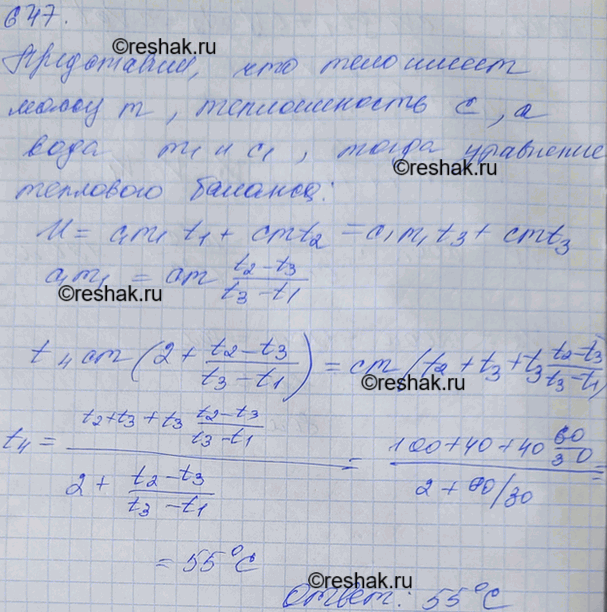 647.
©reshak.ru
Представим, что тело имеет
массу m, теплоемкость c, а
вода m₁ и c₁, тогда уравнение
©reshak.ru
теплового баланса:
U = c₁m₁t₁ + cmt₂ = c₁m₁t₃ + cmt₃
c₁m₁ = cm (t₂-t₃)/(t₃-t₁)
©reshak.ru
t₄cm(2 + (t₂-t₃)/(t₃-t₁)) = cm(t₂ + t₃ + t₃ (t₂-t₃)/(t₃-t₁))
©reshak.ru
t₄ = (t₂+t₃+t₃ (t₂-t₃)/(t₃-t₁))/(2 + (t₂-t₃)/(t₃-t₁)) = (100+40+40 60/30)/(2+60/30) =
= 55°C
©reshak.ru
Ответ: 55°C